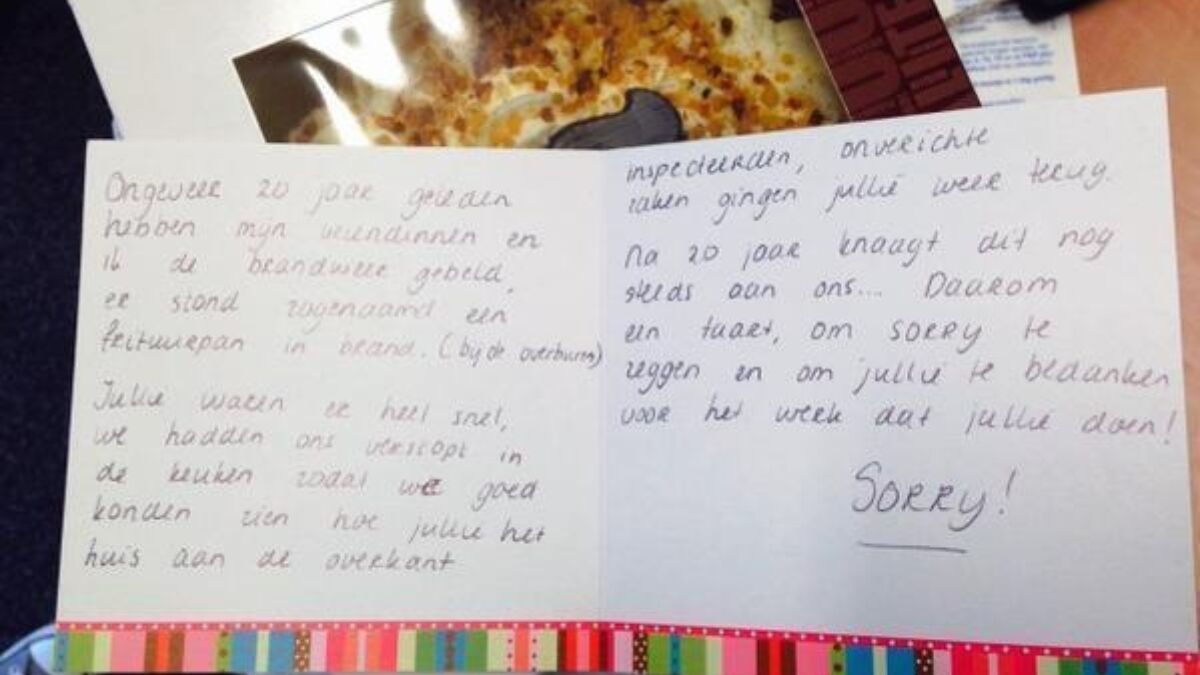 Ongeveer 20 jaar geleden
hebben mijn vriendinnen en
ik de brandweer gebeld,
er stond zogenaamd een
frituurpan in brand. (bij de overburen)
Jullie waren er heel snel,
we hadden ons verstopt in
de keuken zodat we goed
konden zien hoe jullie het
huis aan de overkant
inspecteerden, onverichte
zaken gingen jullie weer terug.
Na 20 jaar knaagt dit nog
steeds aan ons.... Daarom
een taart, om sorry te
zeggen en om jullie te bedanken
voor het werk dat jullie doen!
Sorry!